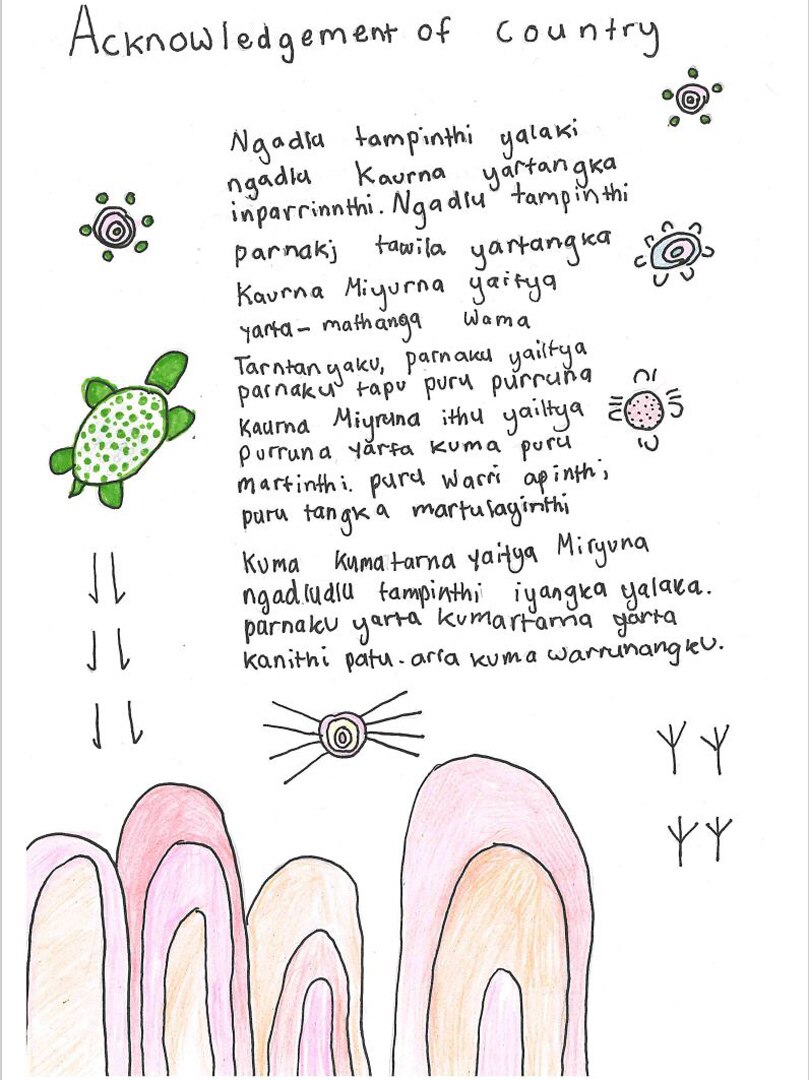 Acknowledgement of country
Ngadlu tampinthi yalaki
ngadlu Kaurna yartangka
inparrinnthi. Ngadlu tampinthi
parnakj tawila yartangka
Kaurna Miyurna yaitya
yarta- mathanga Wama
Tarntanyaku, parnaku yailtya
parnaku tapu puru purruna
Kaurna Miyruna ithu yailtya
purruna yarta kuma puru
martinthi. puru warri apinthi;
puru tangka martulaginthi
Kuma Kumatarna yaitya Miryuna
ngadludlu tampinthi iyangka yalaka.
parnaku yarta kumartarna yarta
kanithi patu-arra kuma warrunangku.